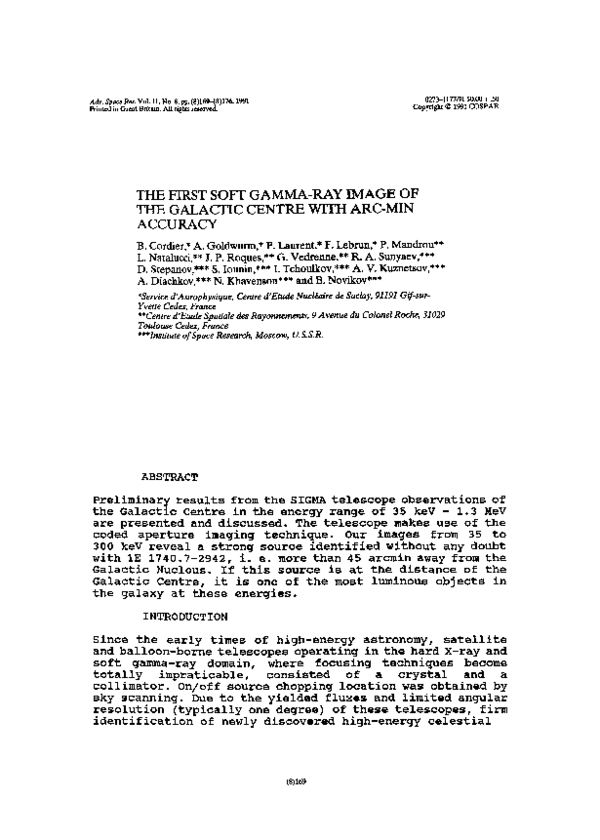 Adv. Space Res. Vol. 11, No. 8, pp. (8)169–(8)176, 1991
Printed in Great Britain. All rights reserved.
0273–1177/91 $0.00 + .50
Copyright © 1991 COSPAR
THE FIRST SOFT GAMMA-RAY IMAGE OF
THE GALACTIC CENTRE WITH ARC-MIN
ACCURACY
B. Cordier,* A. Goldwurm,* P. Laurent,* F. Lebrun,* P. Mandrou**
L. Natalucci,** J. P. Roques,** G. Vedrenne,** R. A. Sunyaev,***
D. Stepanov,*** S. Iounin,*** I. Tchoulkov,*** A. V. Kuznetsov,***
A. Diachkov,*** N. Khavenson*** and B. Novikov***
*Service d'Astrophysique, Centre d'Etude Nucléaire de Saclay, 91191 Gif-sur-
Yvette Cedex, France
**Centre d'Etude Spatiale des Rayonnements, 9 Avenue du Colonel Roche, 31029
Toulouse Cedex, France
***Institute of Space Research, Moscow, U.S.S.R.
ABSTRACT
Preliminary results from the SIGMA telescope observations of
the Galactic Centre in the energy range of 35 keV - 1.3 MeV
are presented and discussed. The telescope makes use of the
coded aperture imaging technique. Our images from 35 to
300 keV reveal a strong source identified without any doubt
with 1E 1740.7-2942, i. e. more than 45 arcmin away from the
Galactic Nucleus. If this source is at the distance of the
Galactic Centre, it is one of the most luminous objects in
the galaxy at these energies.
INTRODUCTION
Since the early times of high-energy astronomy, satellite
and balloon-borne telescopes operating in the hard X-ray and
soft gamma-ray domain, where focusing techniques become
totally impraticable, consisted of a crystal and a
collimator. On/off source chopping location was obtained by
sky scanning. Due to the yielded fluxes and limited angular
resolution (typically one degree) of these telescopes, firm
identification of newly discovered high-energy celestial
(8)169